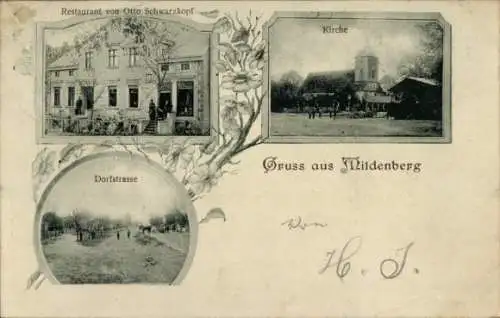 Restaurant von Otto Schwarzkopf
Kirche
Gruss aus Mildenberg
Dorfstrasse
Von
H. J.